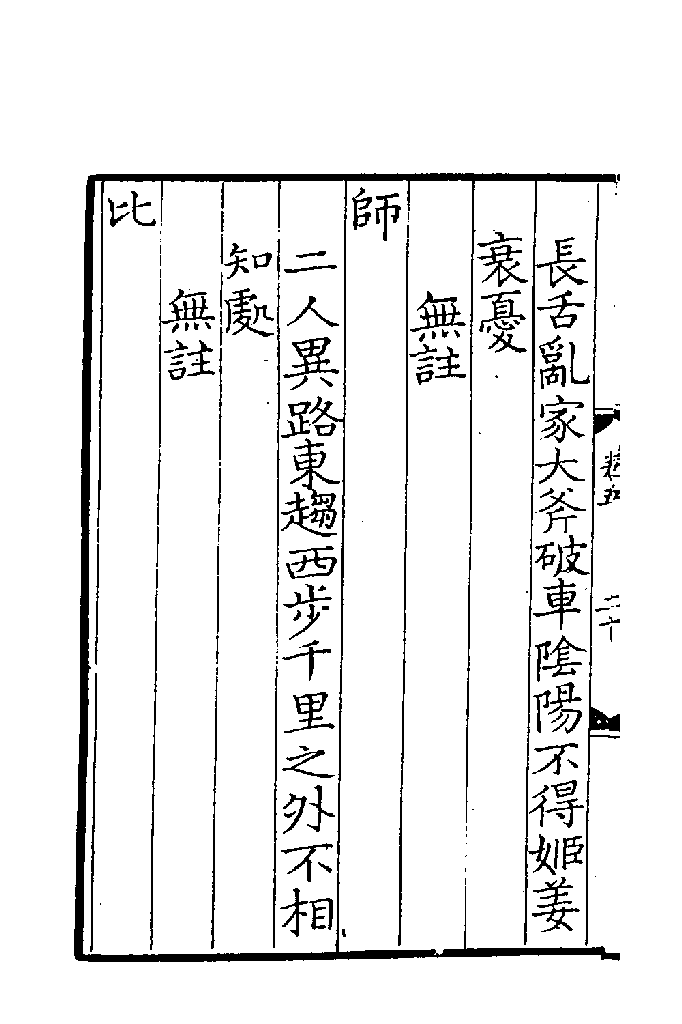 長舌亂家大斧破車陰陽不得姬姜
衰憂
無註
師
二人異路東趨西步千里之外不相
知處
無註
比
二十